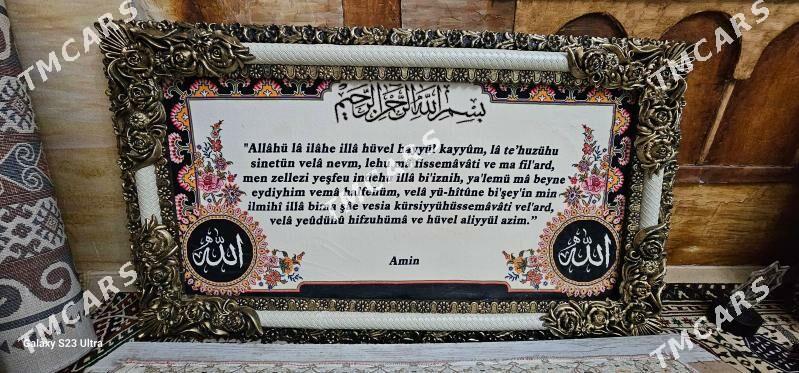 بسم الله الرحمن الرحيم
"Allâhü lâ ilâhe illâ hüvel hayyül kayyûm, lâ te'huzühu
sinetün velâ nevm, lehu mâ fissemâvâti ve ma fil'ard,
men zellezi yeşfeu indehu illâ bi'iznih, ya'lemü mâ beyne
eydiyhim vemâ halfehüm, velâ yü-hîtûne bi'şey'in min
ilmihî illâ bima şâe vesia kürsiyyühüssemâvâti vel'ard,
velâ yeûdühû hifzuhümâ ve hüvel aliyyül azim."
Amin
الله
الله
TMCARS
TMCARS
TMCARS
TMCARS
TMCARS
TMCARS
TMCARS
TMCARS
TMCARS
Galaxy S23 Ultra